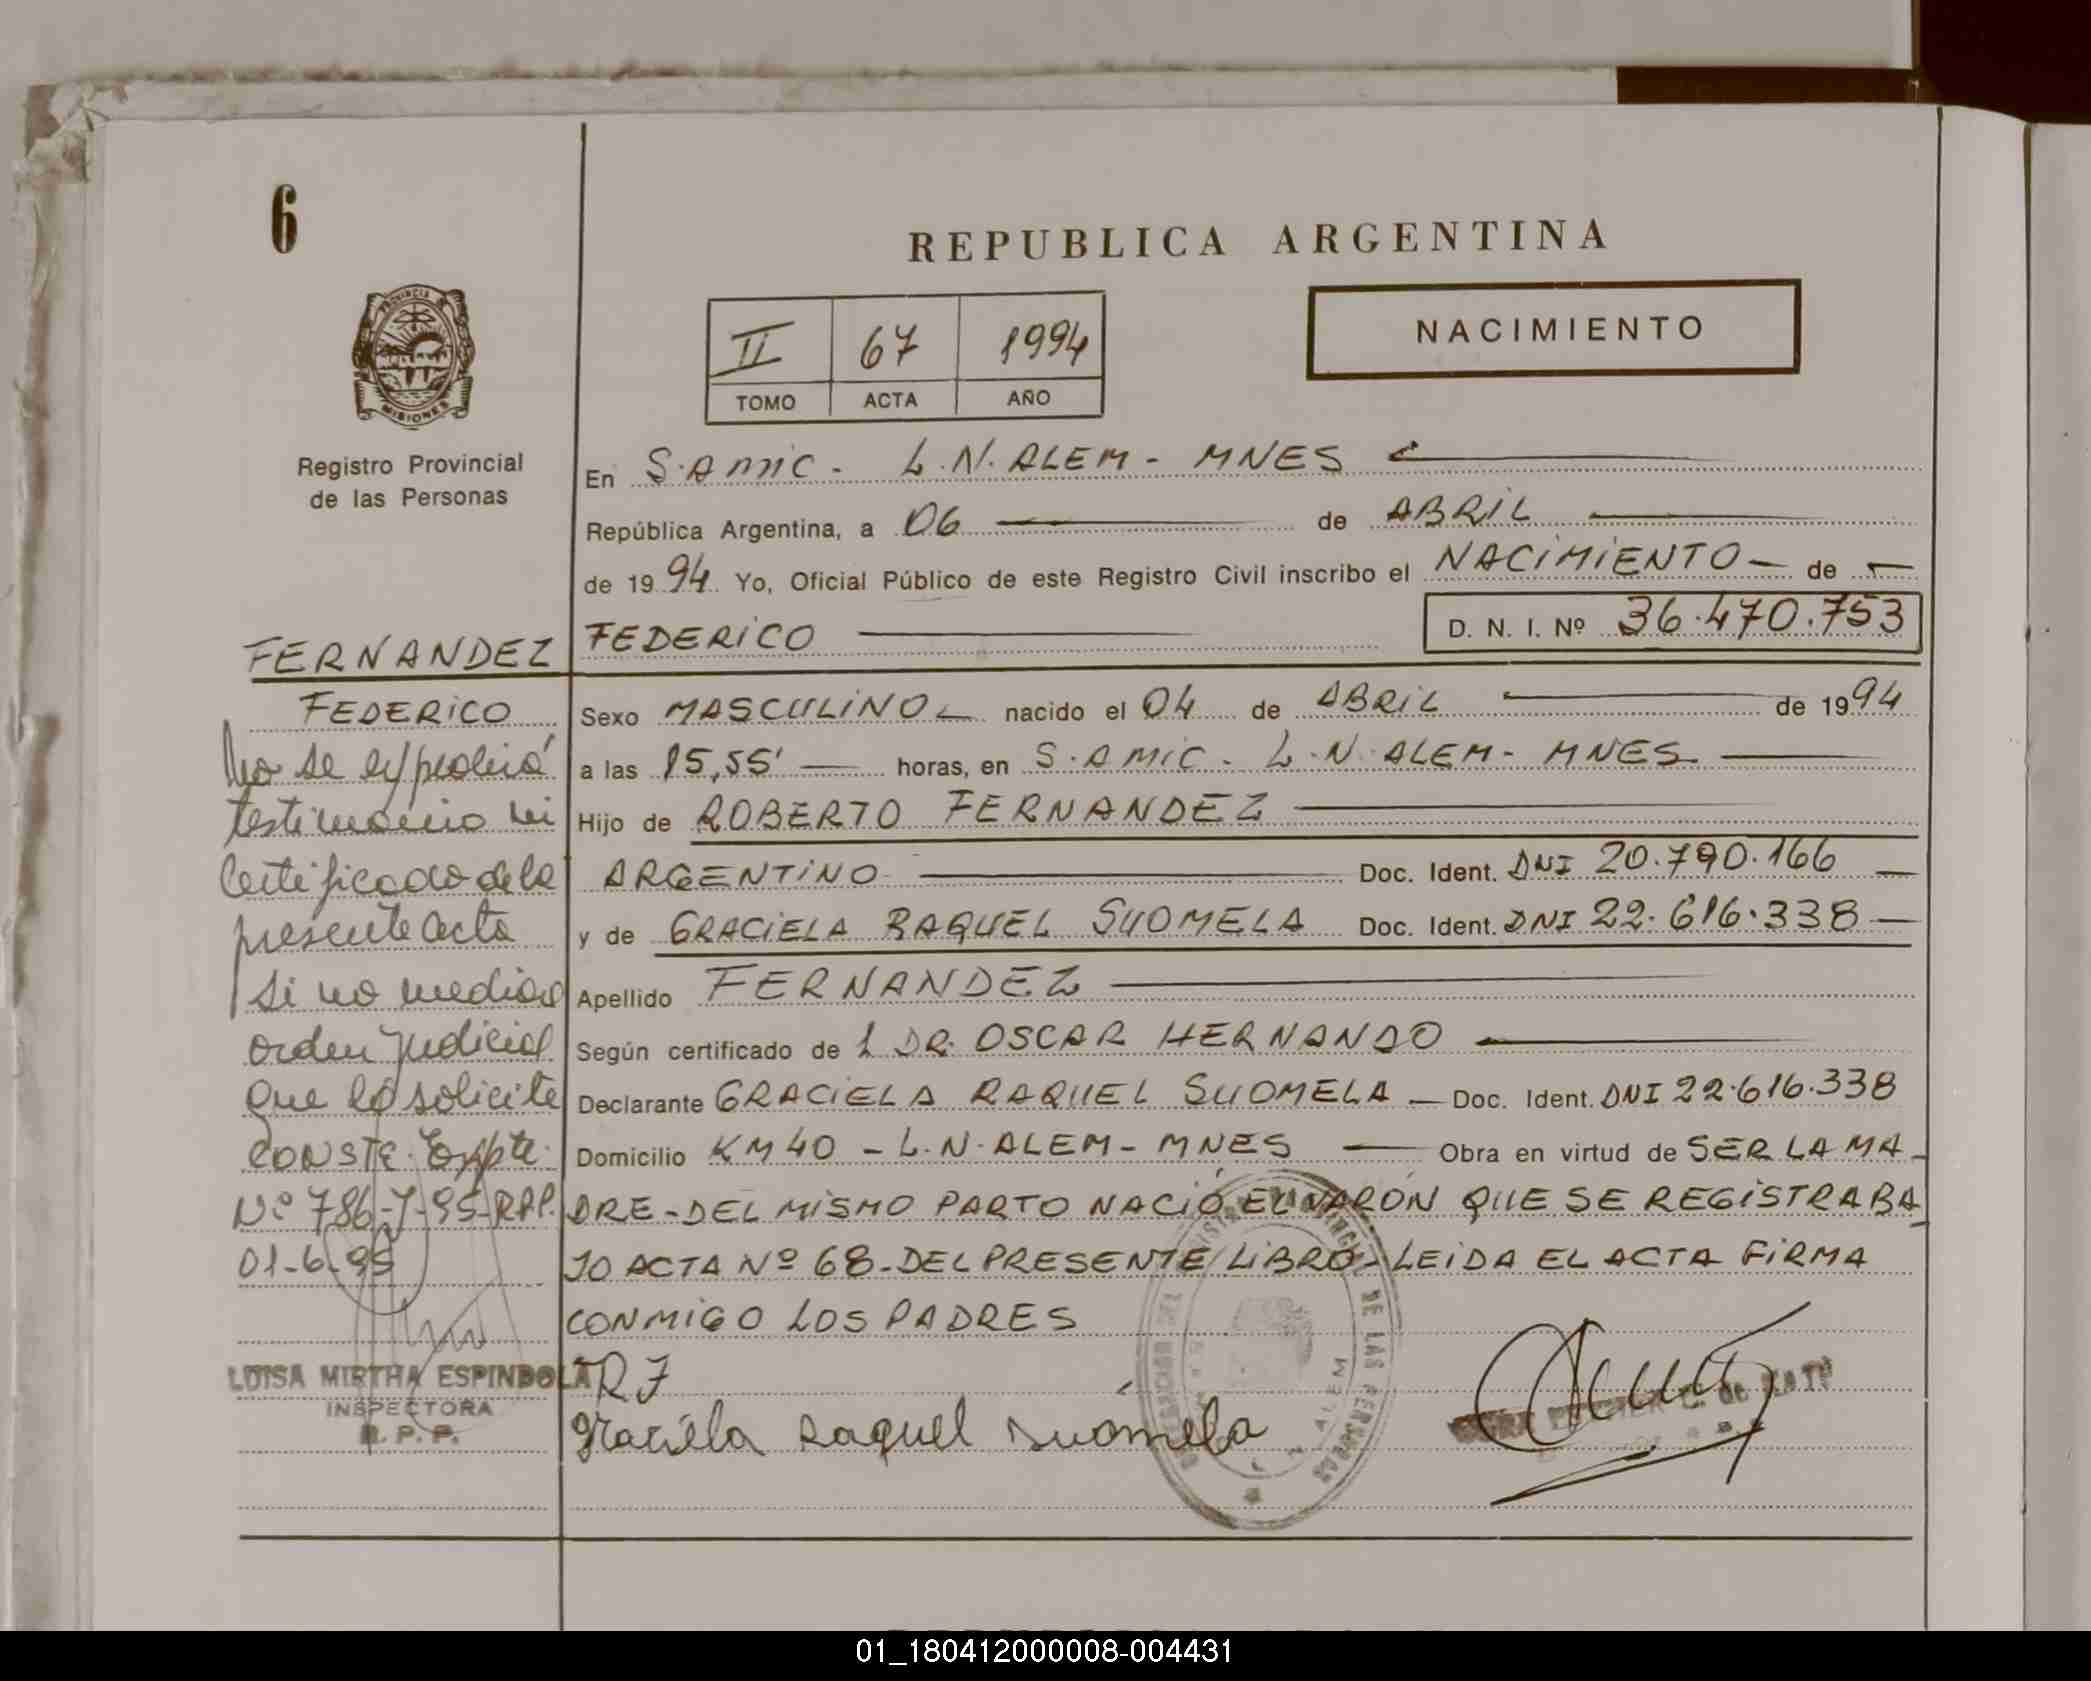 6
REPUBLICA ARGENTINA
PROVINCIA
MISIONES
II 67 1994
TOMO ACTA AÑO
NACIMIENTO
Registro Provincial
de las Personas
En S.AMIC - L.N.ALEM - MNES
República Argentina, a 06 de ABRIL
de 1994 Yo, Oficial Público de este Registro Civil inscribo el NACIMIENTO de
FEDERICO D. N. I. Nº 36.470.753
FERNANDEZ
FEDERICO
No se expedirá
testimonio ni
Certificado de la
presente acta
si no media
orden judicial
que lo solicite
CONSTE. Expte.
Nº 786-J-95-RPP.
01-6-95
LUISA MIRTHA ESPINDOLA
INSPECTORA
R. P. P.
Sexo MASCULINO nacido el 04 de ABRIL de 1994
a las 15,55' horas, en S.AMIC - L.N.ALEM - MNES
Hijo de ROBERTO FERNANDEZ
ARGENTINO Doc. Ident. DNI 20.790.166
y de GRACIELA RAQUEL SUOMELA Doc. Ident. DNI 22.616.338
Apellido FERNANDEZ
Según certificado de 1 DR. OSCAR HERNANDO
Declarante GRACIELA RAQUEL SUOMELA - Doc. Ident. DNI 22.616.338
Domicilio KM 40 - L.N.ALEM - MNES Obra en virtud de SER LA MA-
DRE - DEL MISMO PARTO NACIÓ EL VARÓN QUE SE REGISTRA BA-
JO ACTA Nº 68 - DEL PRESENTE LIBRO - LEIDA EL ACTA FIRMA
CONMIGO LOS PADRES
R F
Graciela Raquel Suomela
DE LAS PERSONAS
ALEM
01_180412000008-004431